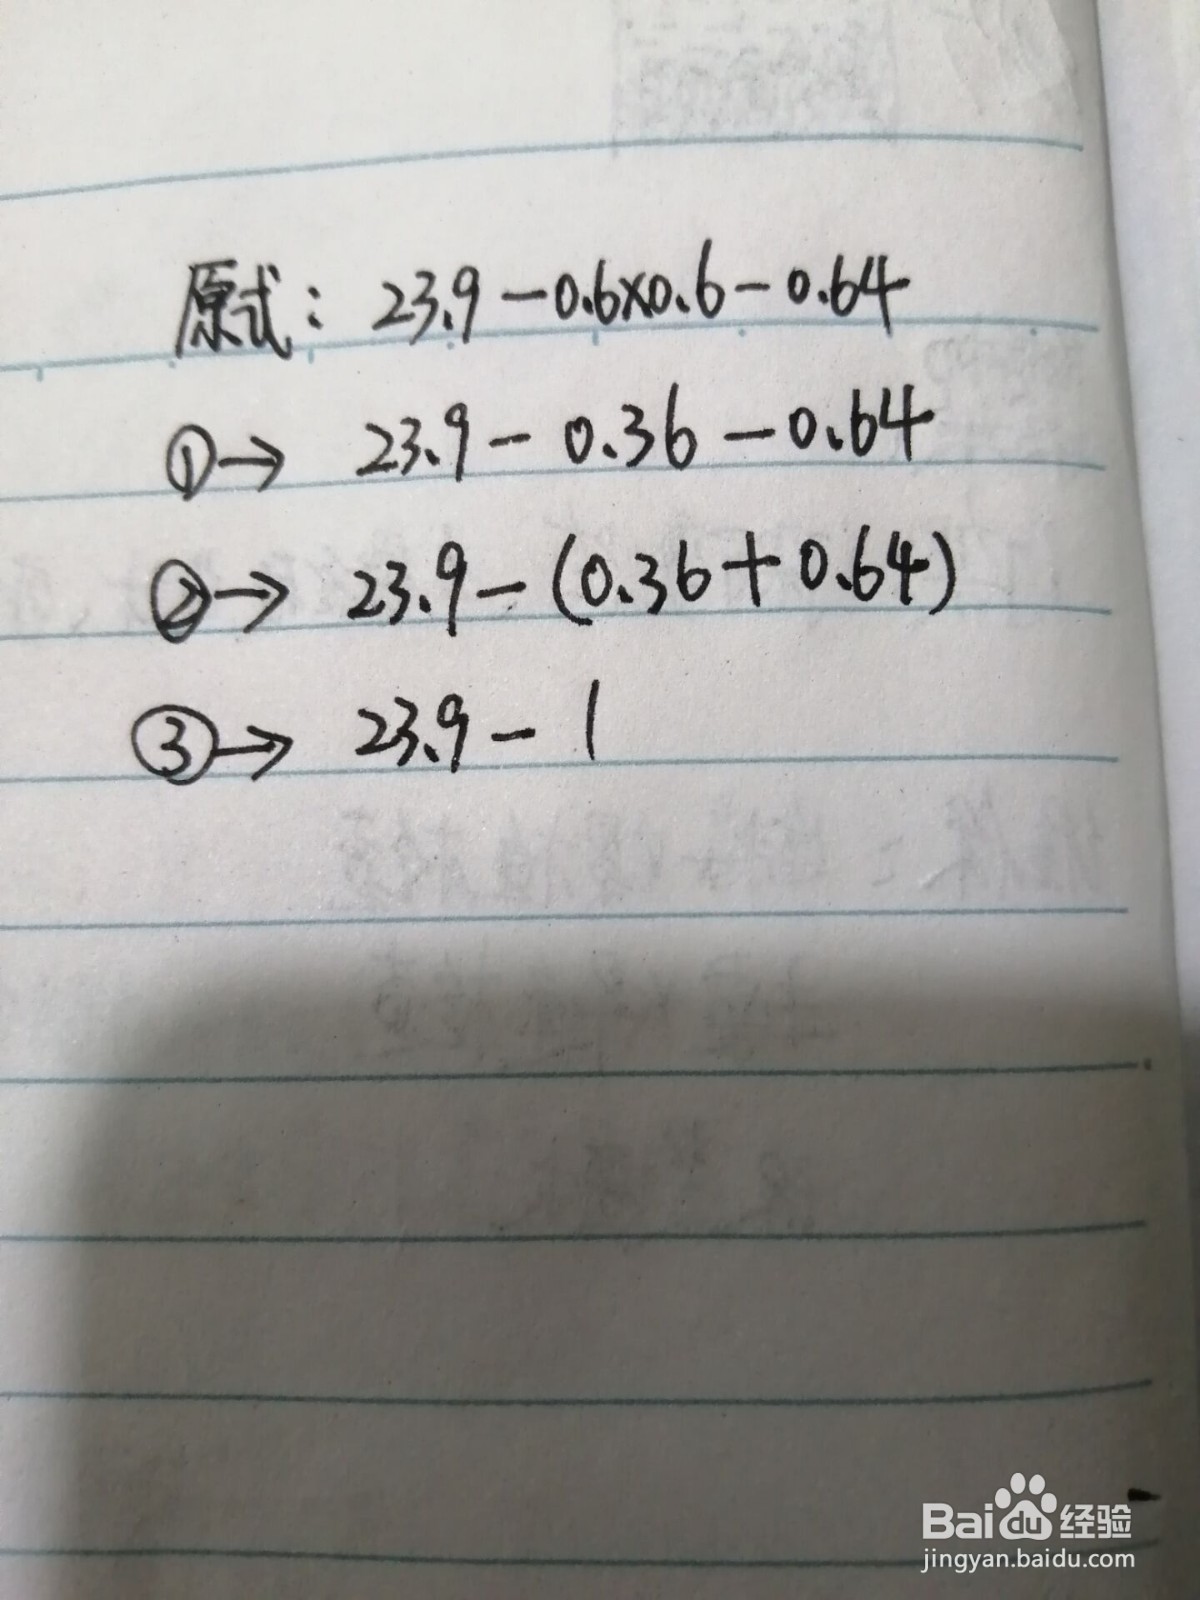 原式: 23.9-0.6×0.6-0.64
①→ 23.9-0.36-0.64
②→ 23.9-(0.36+0.64)
③→ 23.9-1
Baidu经验
jingyan.baidu.com